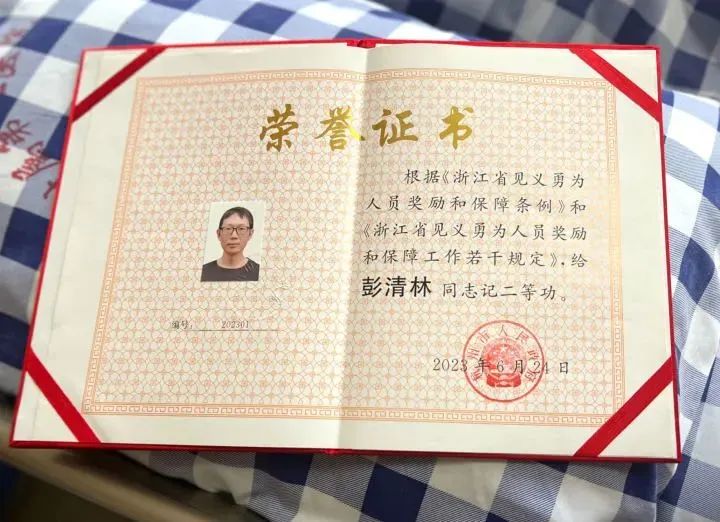 荣誉证书
编号： 202301
根据《浙江省见义勇为
人员奖励和保障条例》和
《浙江省见义勇为人员奖励
和保障工作若干规定》，给
彭清林 同志记二等功。
2023 年 6 月 24 日